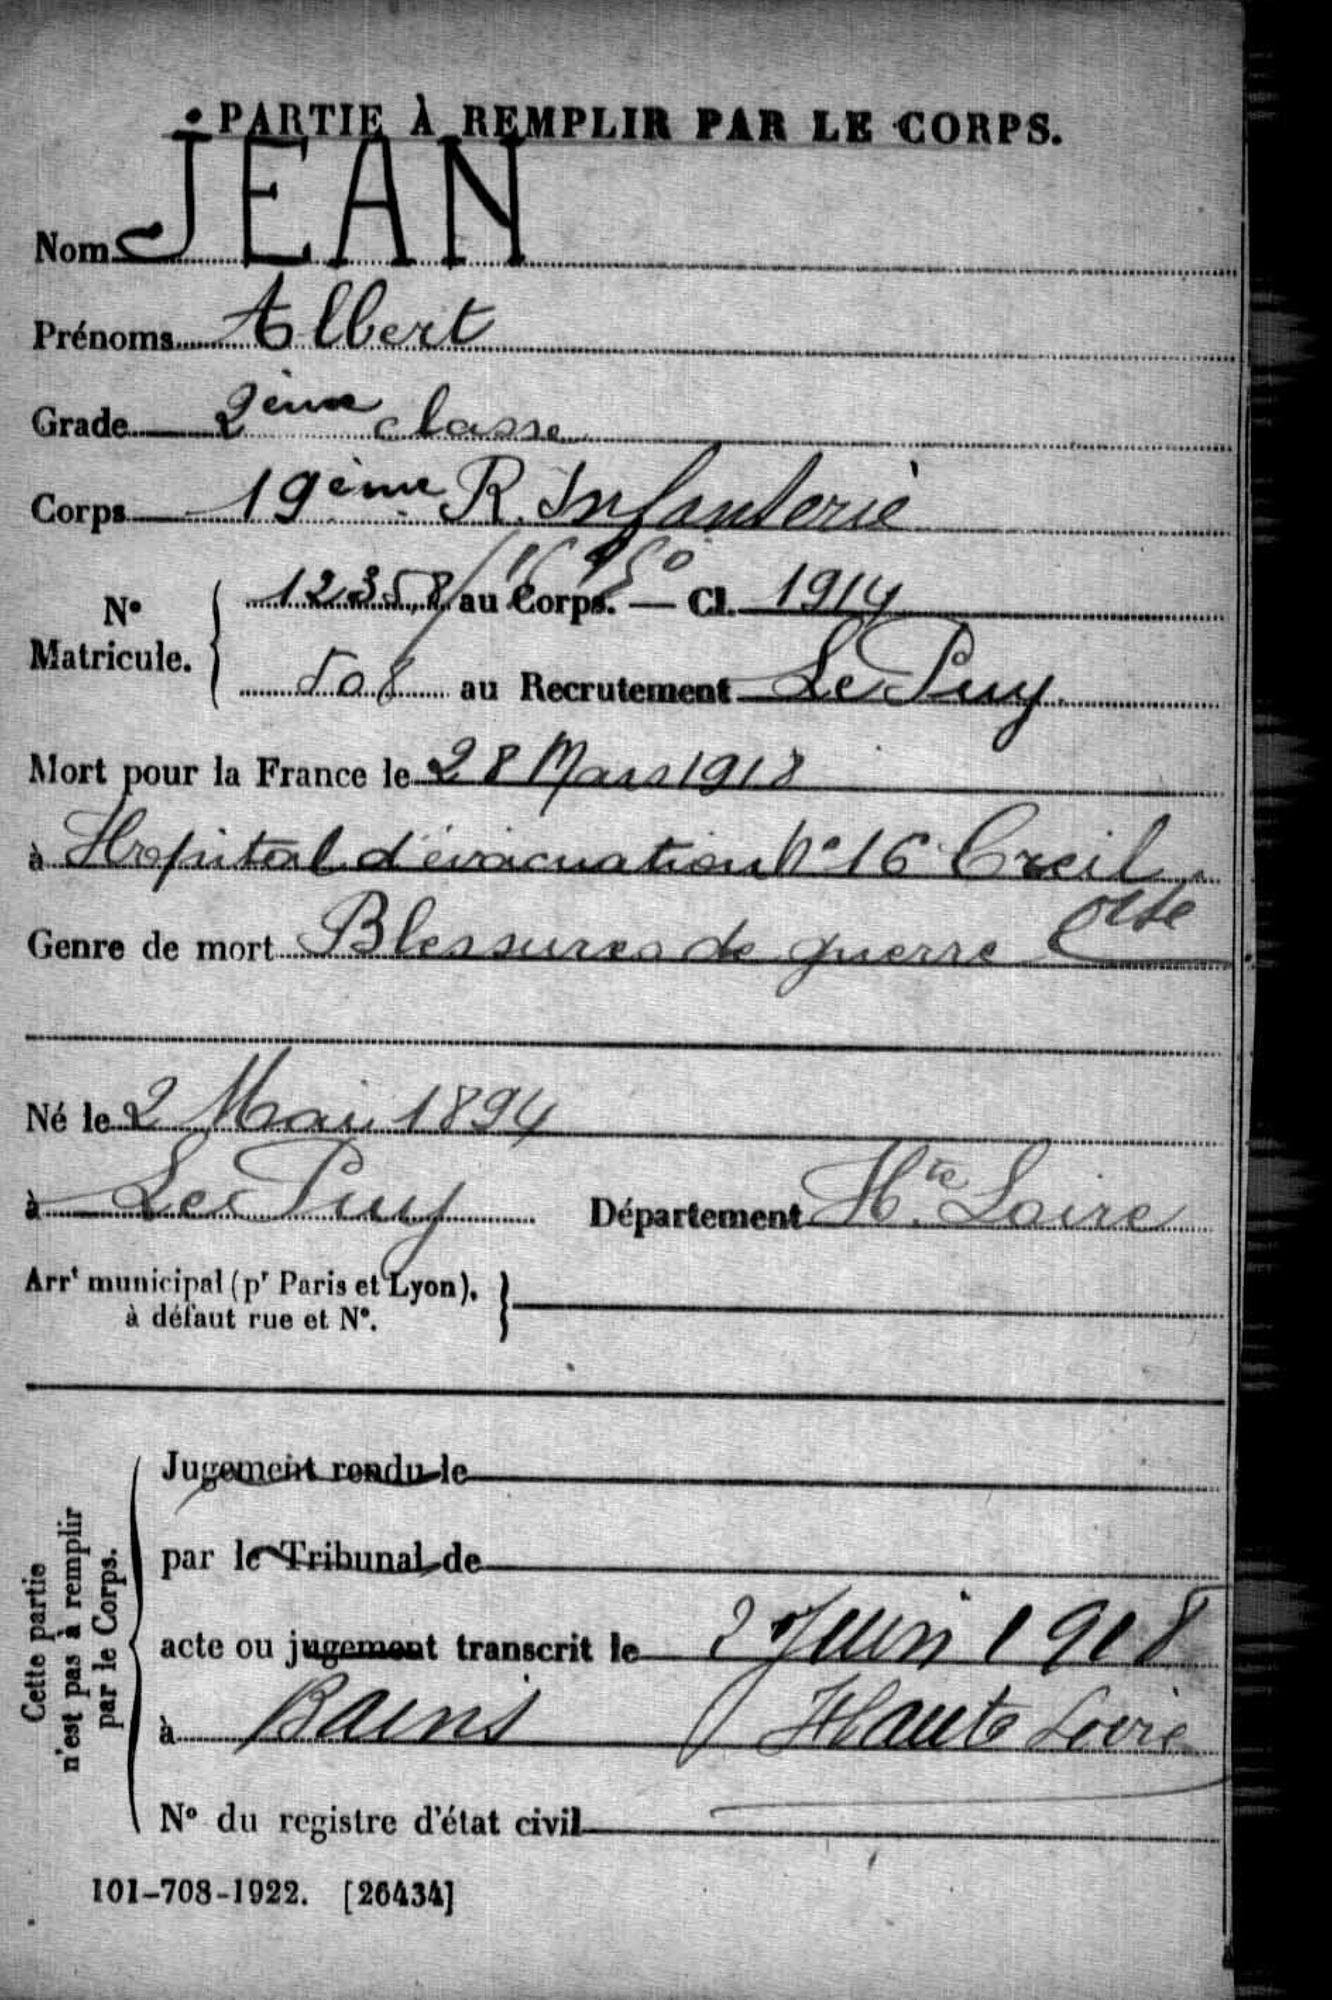 PARTIE À REMPLIR PAR LE CORPS.
Nom JEAN
Prénoms Albert
Grade 2ème classe
Corps 19ème R. Infanterie
N° Matricule. { 12358 / 16950 au Corps. — Cl. 1914
508 au Recrutement Le Puy
Mort pour la France le 28 Mars 1918
à Hopital d'évacuation N° 16 Creil
Oise
Genre de mort Blessures de guerre
Né le 2 Mai 1894
à Le Puy Département Hte Loire
Arrt municipal (pr Paris et Lyon), }
à défaut rue et N°.
Cette partie
n'est pas à remplir
par le Corps.
Jugement rendu le
par le Tribunal de
acte ou jugement transcrit le 2 Juin 1918
à Bains Haute Loire
N° du registre d'état civil
101-708-1922. [26434]